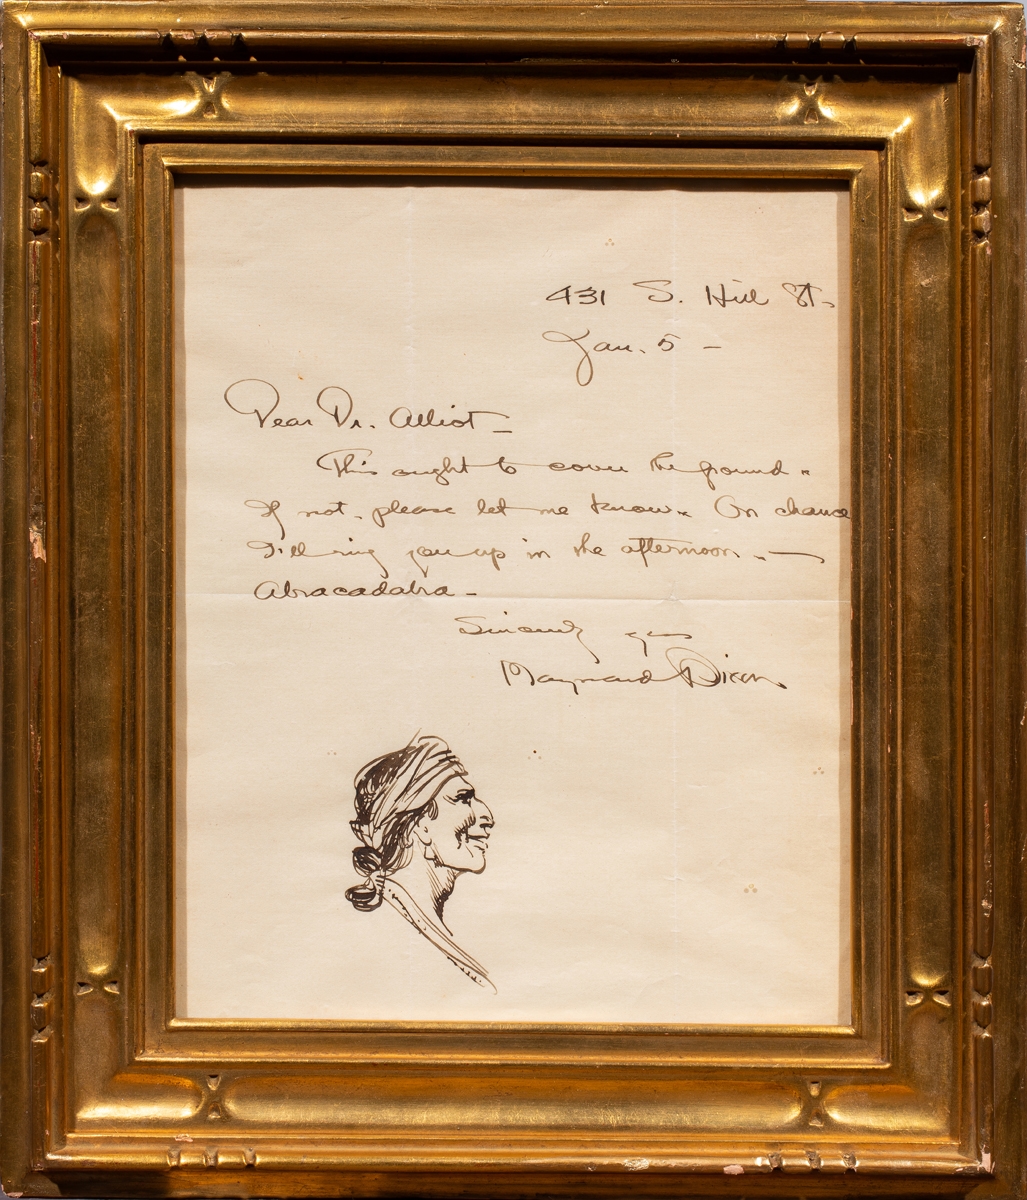 431 S. Hill St.
Jan. 5 –
Dear Dr. Alliot –
This ought to cover the ground.
If not, please let me know. On chance
I'll ring you up in the afternoon. —
Abracadabra –
Sincerely yrs
Maynard Dixon